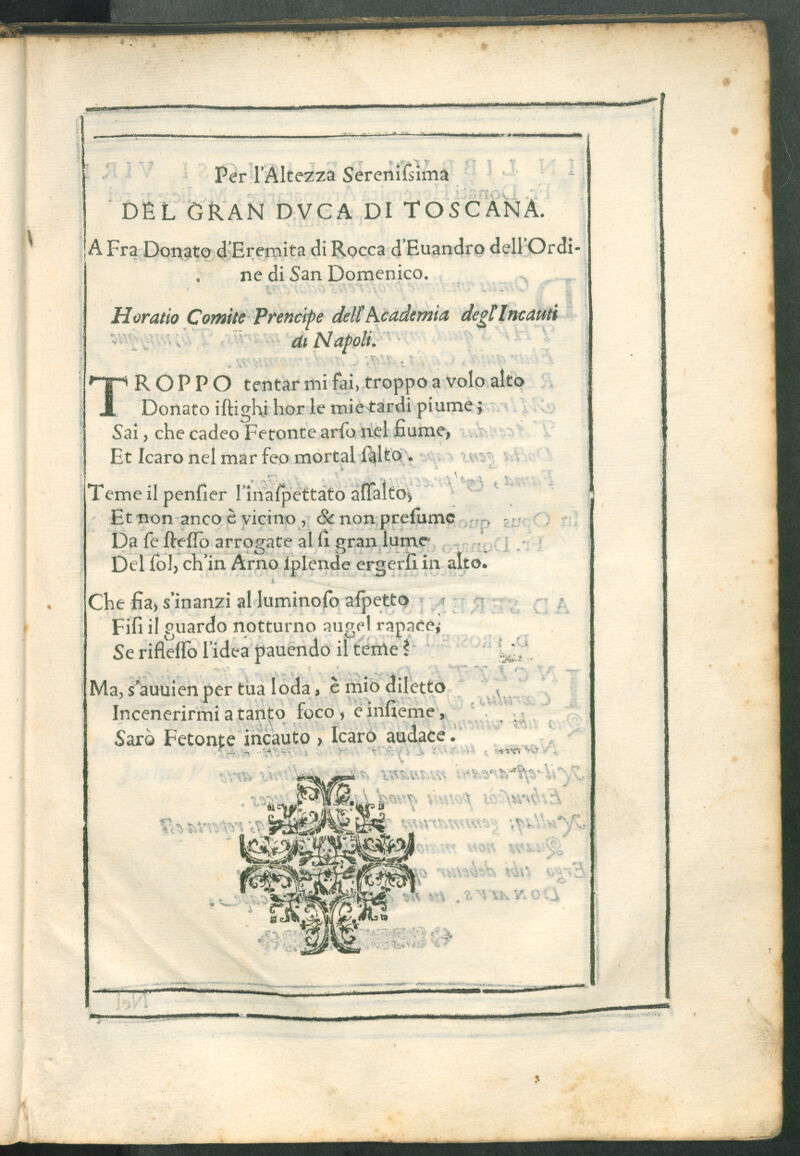 Per l'Altezza Sereniſsima
DEL GRAN DVCA DI TOSCANA.
A Fra Donato d'Eremita di Rocca d'Euandro dell'Ordi-
ne di San Domenico.
Horatio Comite Prencipe dell'Academia degl'Incauti
di Napoli.
TROPPO tentar mi fai, troppo a volo alto
Donato iſtighi hor le mie tardi piume;
Sai, che cadeo Fetonte arſo nel fiume,
Et Icaro nel mar feo mortal ſalto.
Teme il penſier l'inaſpettato aſſalto,
Et non anco è vicino, & non preſume
Da ſe ſteſſo arrogate al ſi gran lume
Del ſol, ch'in Arno ſplende ergerſi in alto.
Che fia, s'inanzi al luminoſo aſpetto
Fiſi il guardo notturno augel rapace,
Se rifleſſo l'idea pauendo il teme?
Ma, s'auuien per tua loda, è mio diletto
Incenerirmi a tanto foco, e inſieme,
Sarò Fetonte incauto, Icaro audace.